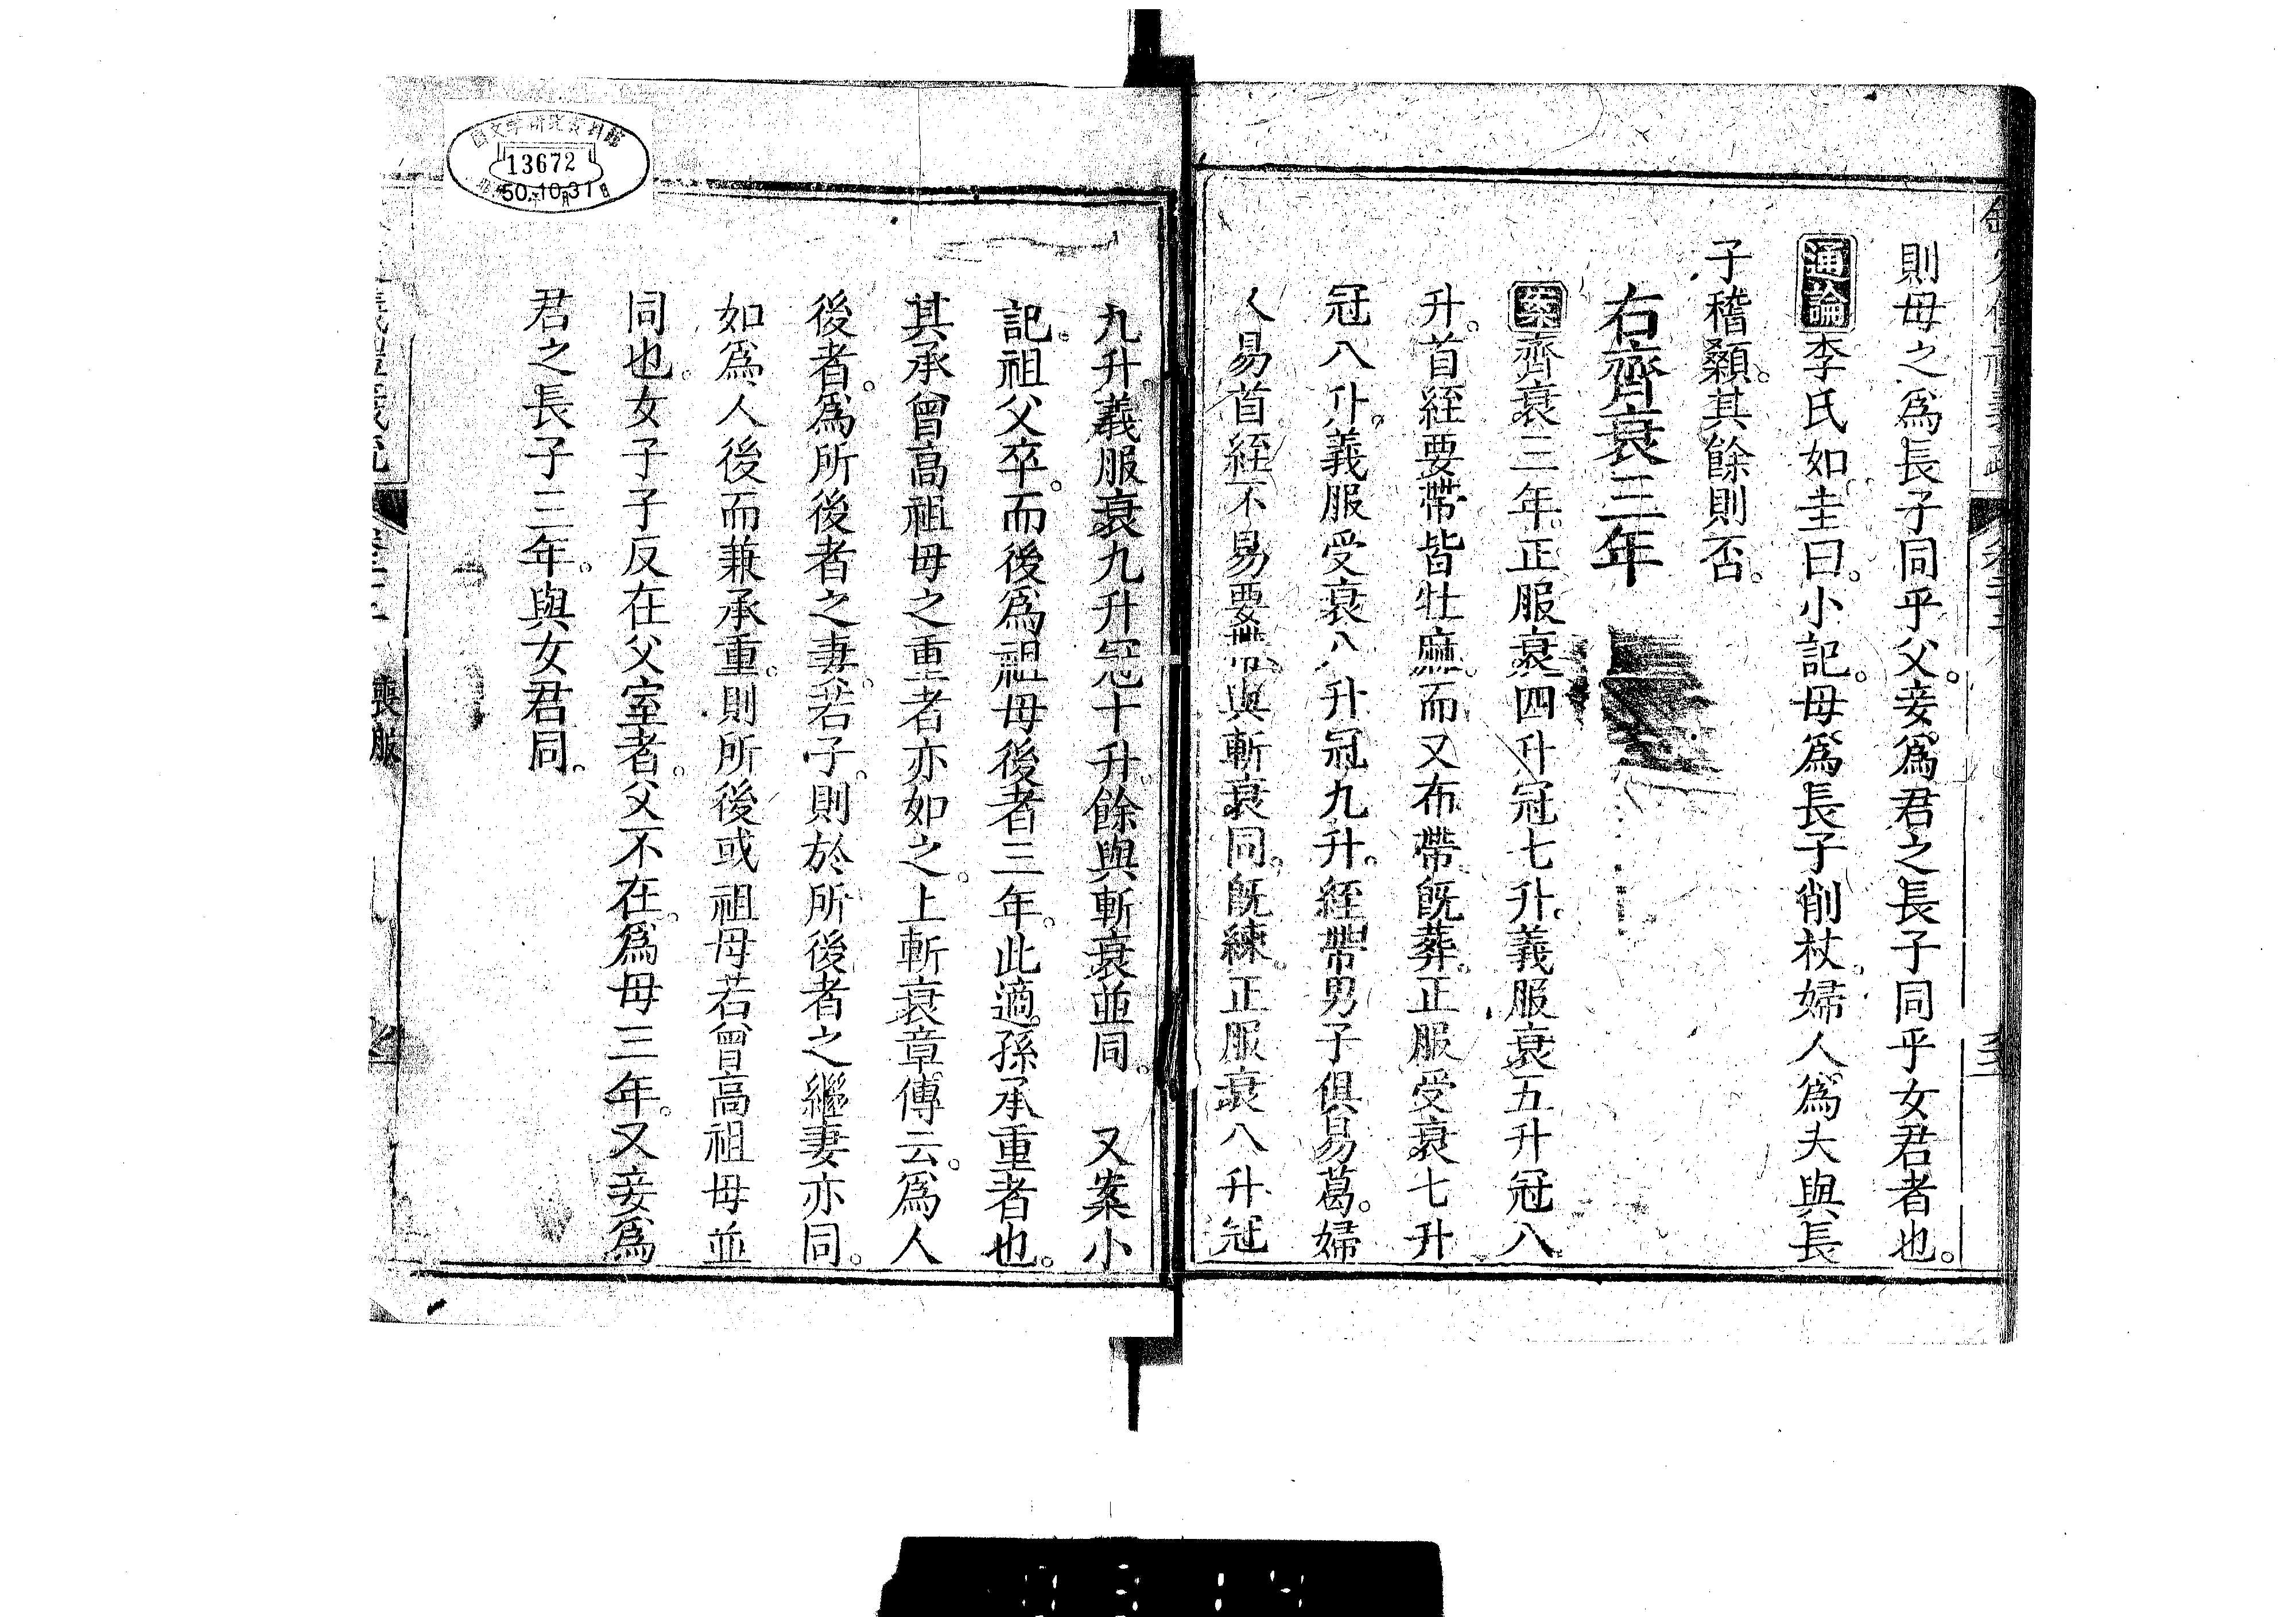 則母之爲長子同乎父。妾爲君之長子同乎女君者也。
通論李氏如圭曰。小記。母爲長子削杖。婦人爲夫與長
子稽顙。其餘則否。
右齊衰三年
案齊衰三年。正服衰四升冠七升。義服衰五升冠八
升。首絰要帶皆牡麻。而又布帶。旣葬。正服受衰七升
冠八升。義服受衰八升冠九升。絰帶男子俱易葛。婦
人易首絰不易要帶。與斬衰同。旣練。正服衰八升冠
九升。義服衰九升冠十升。餘與斬衰並同。 又案小
記。祖父卒。而後爲祖母後者三年。此適孫承重者也。
其承曾高祖母之重者亦如之。上斬衰章傳云。爲人
後者。爲所後者之妻。若子。則於所後者之繼妻亦同。
如爲人後而兼承重。則所後或祖母若曾高祖母並
同也。女子子反在父室者。父不在。爲母三年。又妾爲
君之長子三年。與女君同。
喪服
13672
50.10.31